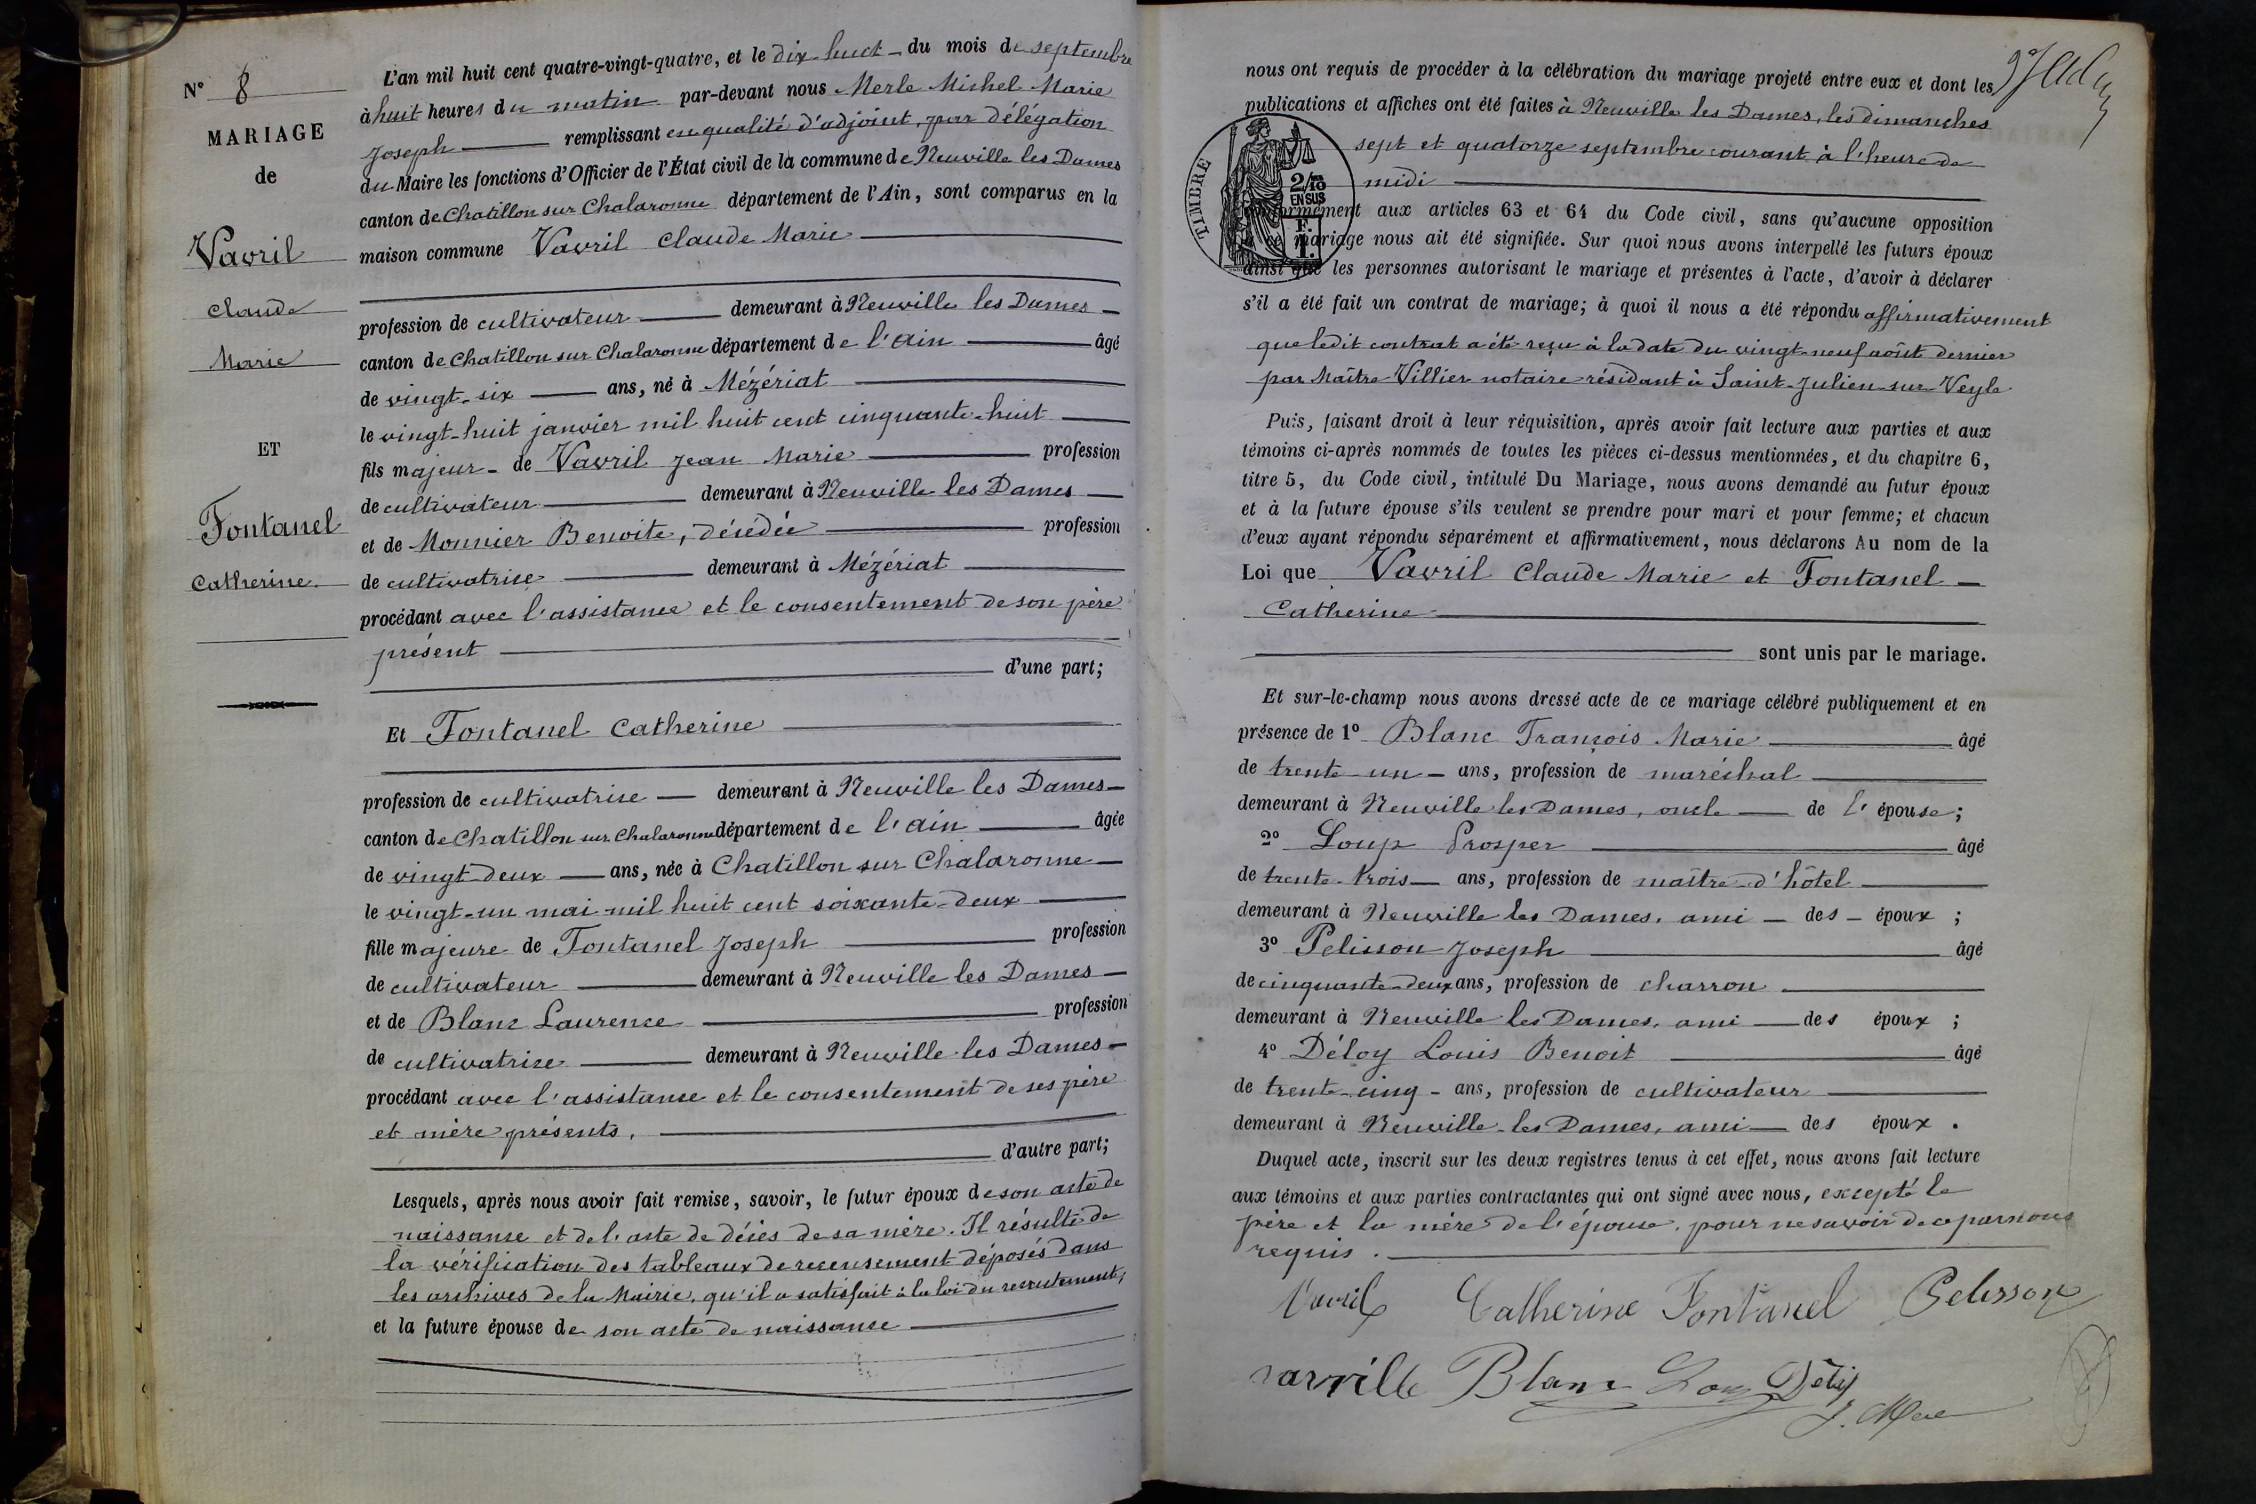 N° 8
MARIAGE
de
Vavril
Claude
Marie
ET
Fontanel
Catherine
L'an mil huit cent quatre-vingt-quatre, et le dix huit du mois de septembre
à huit heures du matin par-devant nous Merle Michel Marie
Joseph remplissant en qualité d'adjoint, par délégation
du Maire les fonctions d'Officier de l'État civil de la commune de Neuville les Dames
canton de Chatillon sur Chalaronne département de l'Ain, sont comparus en la
maison commune Vavril Claude Marie
profession de cultivateur demeurant à Neuville les Dames
canton de Chatillon sur Chalaronne département de l'Ain âgé
de vingt-six ans, né à Mézériat
le vingt-huit janvier mil huit cent cinquante-huit
fils majeur de Vavril Jean Marie profession
de cultivateur demeurant à Neuville les Dames
et de Monnier Benoite, décédée profession
de cultivatrice demeurant à Mézériat
procédant avec l'assistance et le consentement de son père
présent
d'une part;
Et Fontanel Catherine
profession de cultivatrice demeurant à Neuville les Dames
canton de Chatillon sur Chalaronne département de l'Ain âgée
de vingt-deux ans, née à Chatillon sur Chalaronne
le vingt-un mai mil huit cent soixante-deux
fille majeure de Fontanel Joseph profession
de cultivateur demeurant à Neuville les Dames
et de Blanc Laurence profession
de cultivatrice demeurant à Neuville les Dames
procédant avec l'assistance et le consentement de ses père
et mère présents.
d'autre part;
Lesquels, après nous avoir fait remise, savoir, le futur époux de son acte de
naissance et de l'acte de décès de sa mère. Il résulte de
la vérification des tableaux de recensement déposés dans
les archives de la Mairie, qu'il a satisfait à la loi du recrutement,
et la future épouse de son acte de naissance
nous ont requis de procéder à la célébration du mariage projeté entre eux et dont les
publications et affiches ont été faites à Neuville les Dames, les dimanches
sept et quatorze septembre courant à l'heure de
midi
TIMBRE
2/10
EN SUS
F.
1.
conformément aux articles 63 et 64 du Code civil, sans qu'aucune opposition
à ce mariage nous ait été signifiée. Sur quoi nous avons interpellé les futurs époux
ainsi que les personnes autorisant le mariage et présentes à l'acte, d'avoir à déclarer
s'il a été fait un contrat de mariage; à quoi il nous a été répondu affirmativement
que ledit contrat a été reçu à la date du vingt-neuf août dernier
par Maître Villier notaire résidant à Saint-Julien-sur-Veyle
Puis, faisant droit à leur réquisition, après avoir fait lecture aux parties et aux
témoins ci-après nommés de toutes les pièces ci-dessus mentionnées, et du chapitre 6,
titre 5, du Code civil, intitulé Du Mariage, nous avons demandé au futur époux
et à la future épouse s'ils veulent se prendre pour mari et pour femme; et chacun
d'eux ayant répondu séparément et affirmativement, nous déclarons Au nom de la
Loi que Vavril Claude Marie et Fontanel
Catherine
sont unis par le mariage.
Et sur-le-champ nous avons dressé acte de ce mariage célébré publiquement et en
présence de 1° Blanc François Marie âgé
de trente-un ans, profession de maréchal
demeurant à Neuville les Dames, oncle de l'épouse;
2° Loup Prosper âgé
de trente-trois ans, profession de maître d'hôtel
demeurant à Neuville les Dames, ami des époux;
3° Pelisson Joseph âgé
de cinquante-deux ans, profession de charron
demeurant à Neuville les Dames, ami des époux;
4° Déloy Louis Benoit âgé
de trente-cinq ans, profession de cultivateur
demeurant à Neuville-les-Dames, ami des époux.
Duquel acte, inscrit sur les deux registres tenus à cet effet, nous avons fait lecture
aux témoins et aux parties contractantes qui ont signé avec nous, excepté le
père et la mère de l'épouse, pour ne savoir de ce par nous
requis.
Vavril Catherine Fontanel Pelisson
vavrille Blanc Loup Déloy